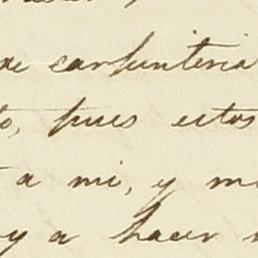 de carpinteria
to, pues estos
a mi, y m
y a hacer